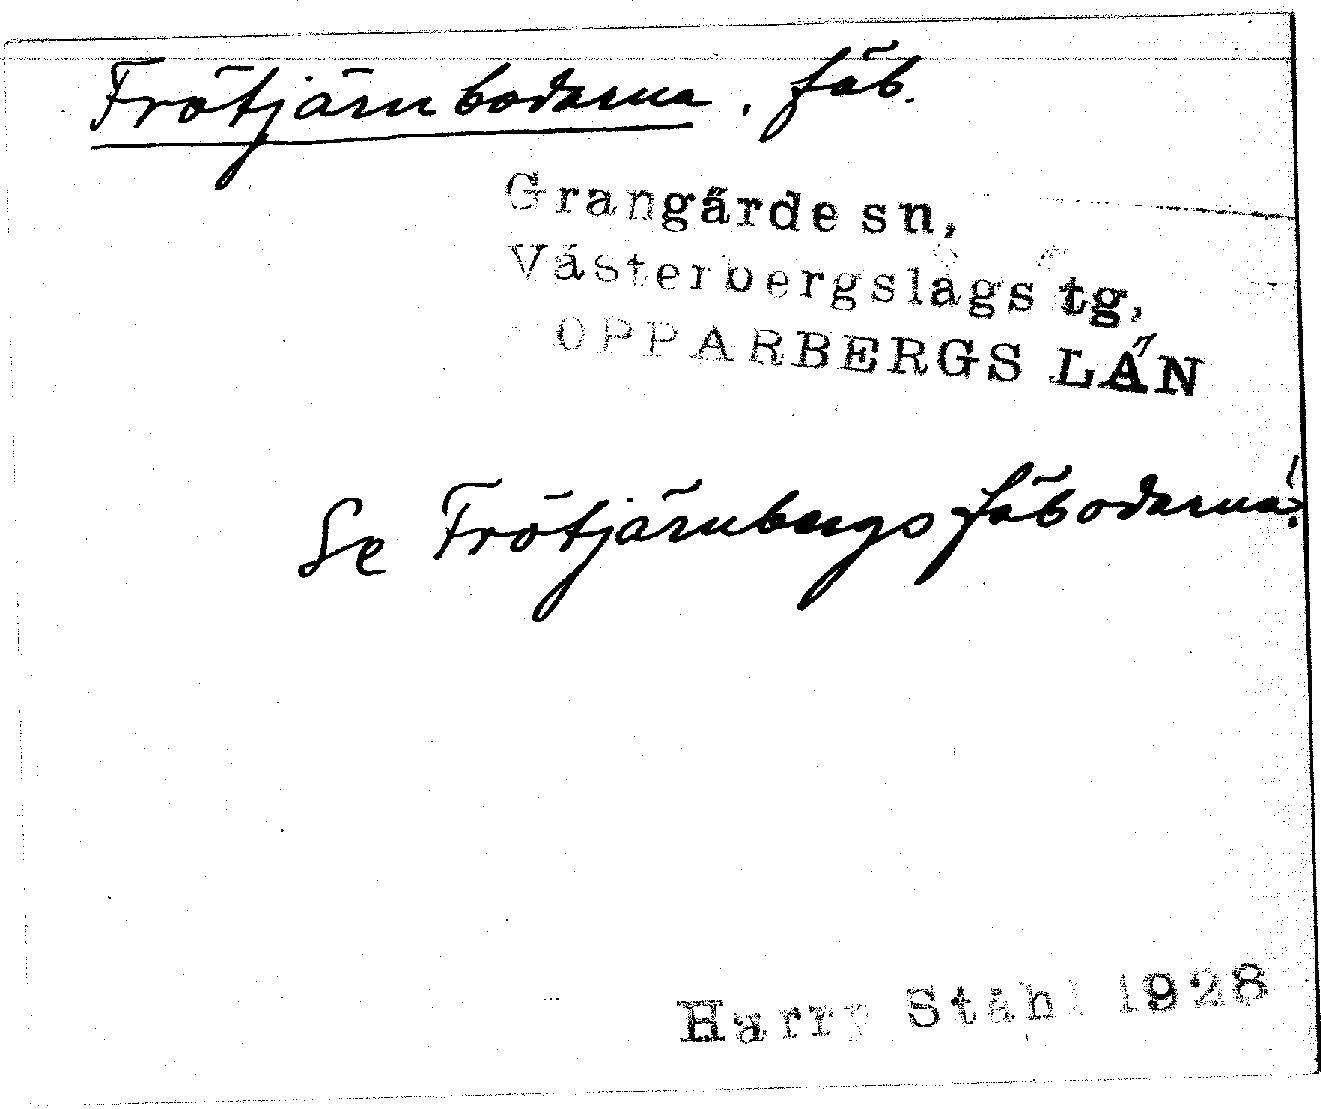 Frötjärnbodarna, fäb.
Grangärde sn,
Västerbergslags tg,
OPPARBERGS LÄN
Se Frötjärnbergsfäbodarna!
Harry Ståhl 1928